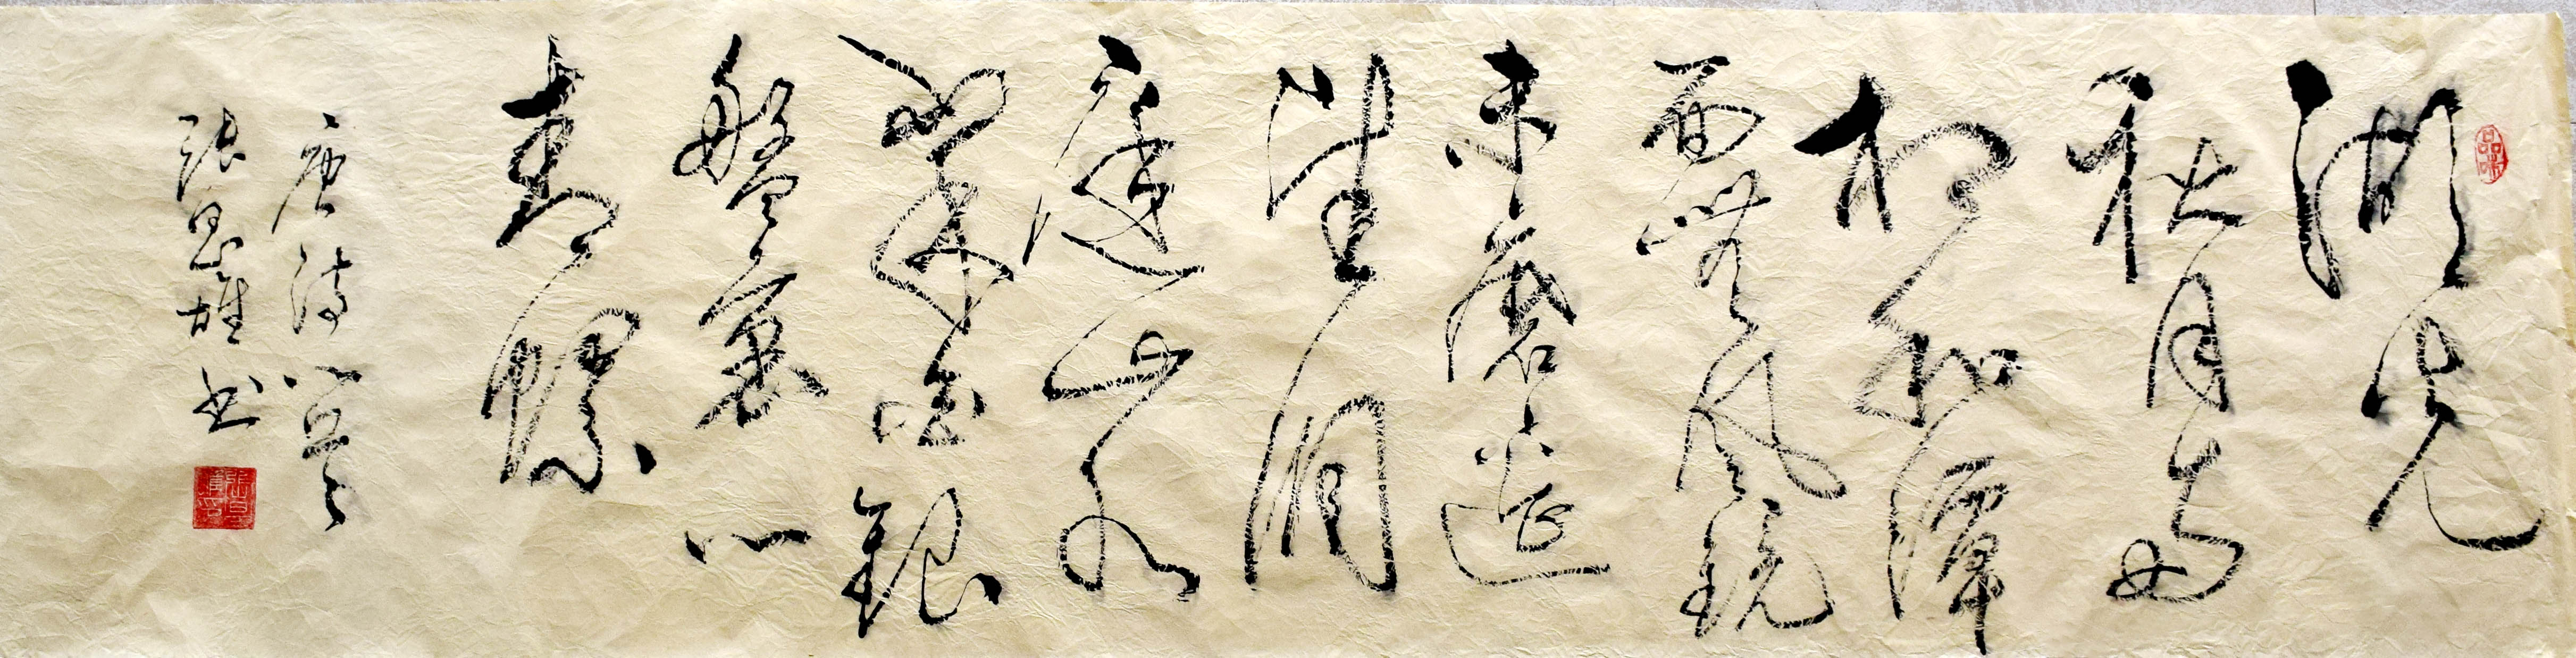 品味
湖光
秋月兩
相和潭
面無風鏡
未磨遙
望洞
庭山水
翠白銀
盤裏一
青螺
唐詩一首
張雄书